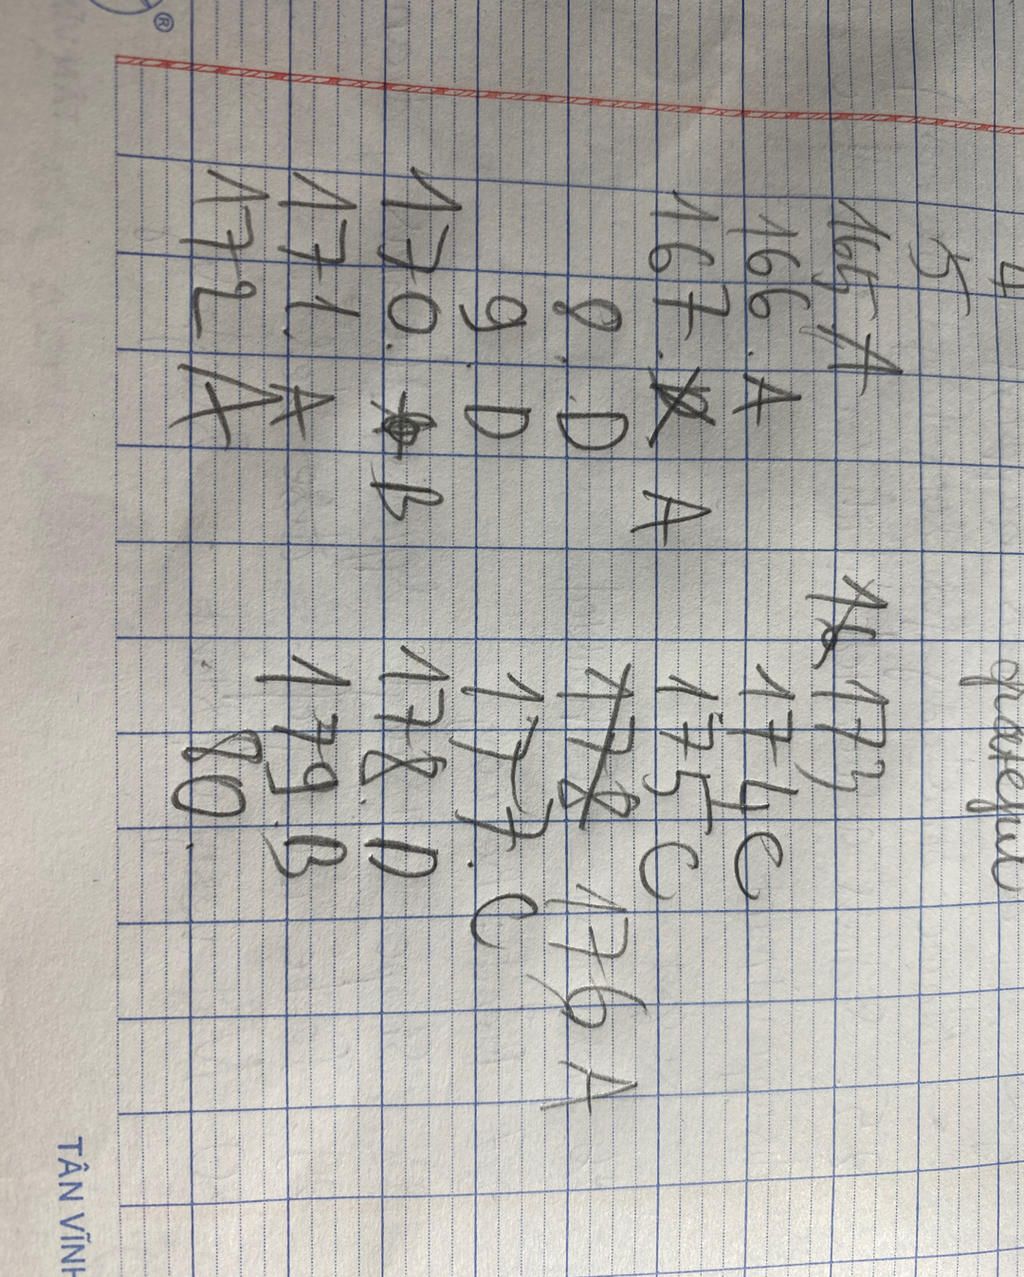 4
5
165 A
166. A
167. A
8. D
9. D
170. B
171. A
172 A
173
174 C
175 C
176 A
177. C
178. D
179. B
80.
TÂN VĨNH
®